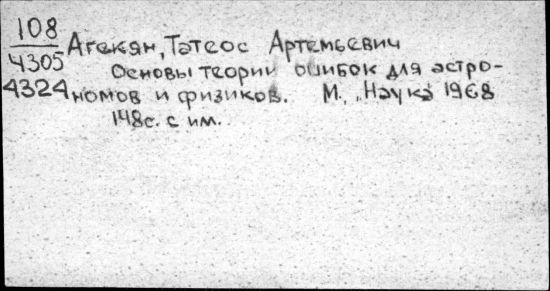 108
4305
4324
Агекян, Татеос Артемьевич
Основы теории ошибок для астро-
номов и физиков. М., „Наука 1968
148с. с им.